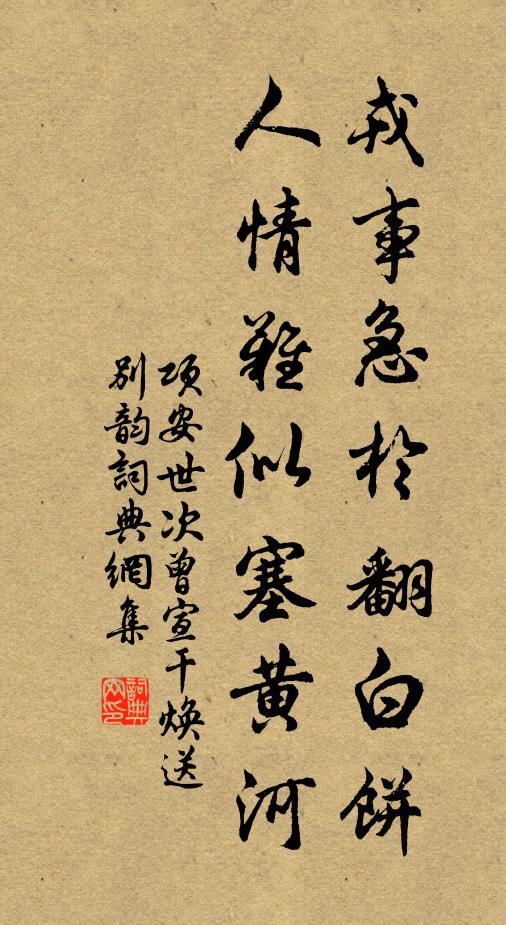 戎事急於翻白餅
人情難似塞黃河
項安世次曾宣干煥送
別韵詞典網集
詞典
网印